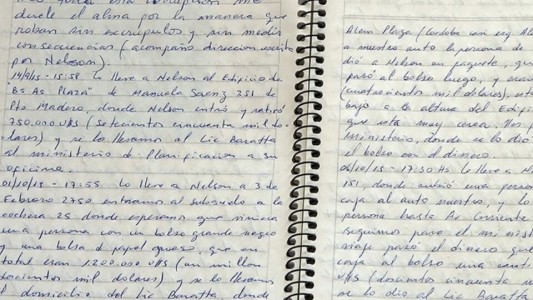 duele el alma por la manera que
roban sin escrupulos y sin medir
consecuencias (acompaño direccion escrita
por Nelson).
14/9/15 - 15:58 Lo lleve a Nelson al Edificio de
"Bs As Plaza" de Manuela Saenz 251 de
Pto Madero, donde Nelson entró y retiró
750.000 U$S (setecientos cincuenta mil do-
lares) y se lo llevamos al Lic Baratta
al ministerio de Planificacion a su
oficina.
01/10/15 - 17:55 Lo lleve a Nelson a 3 de
Febrero 2750 entramos al subsuelo a la
cochera 25 donde esperamos que viniera
una persona con un bolso grande negro
y una bolsa d papel grueso, que en
total eran 1.200.000 U$S (un millon
doscientos mil dolares) y se lo llevamos
al domicilio del Lic Baratta donde
Alem Plaza (Cordoba
a nuestro auto la persona de
dió a Nelson un paquete, que
pasó al bolso luego, y eran
mil dolares),
bajo a la altura del
que está muy cerca.
ministerio, donde se lo dió
el bolso con el dinero.
17:30 Hs Lo lleve a
151, donde subió una persona
caja al auto nuestro, y lo
persona hasta Av Corrientes
seguimos para el
viaje pasó el dinero que
caja al bolso una
U$S (doscientos cincuenta
se lo dió al Lic Baratta